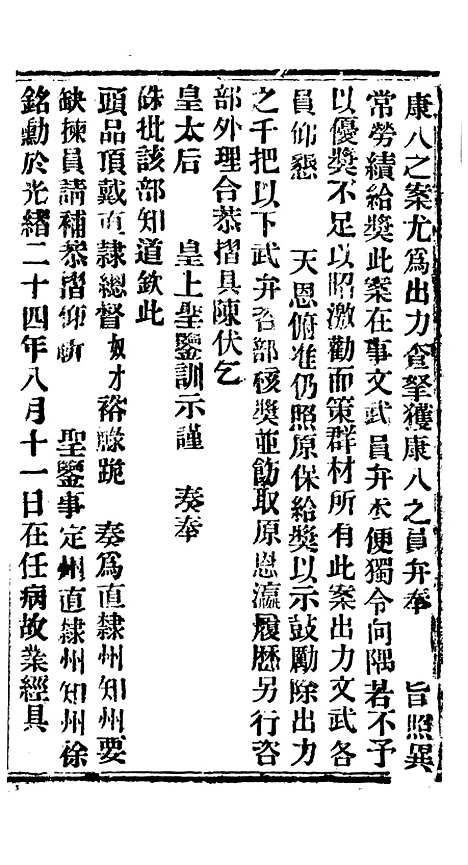 康八之案尤爲出力貪拏獲康八之員弁奉 旨照異
常勞績給獎此案在事文武員弁未便獨令向隅若不予
以優獎不足以昭激勸而策群材所有此案出力文武各
員仰懇 天恩俯准仍照原保給獎以示鼓勵除出力
之千把以下武弁咨部核獎並飭取原恩瀛履歷另行咨
部外理合恭摺具陳伏乞
皇太后 皇上聖鑒訓示謹 奏奉
硃批該部知道欽此
頭品頂戴直隸總督奴才裕祿跪 奏爲直隸州知州要
缺揀員請補恭摺仰祈 聖鑒事定州直隸州知州徐
銘勳於光緒二十四年八月十一日在任病故業經具